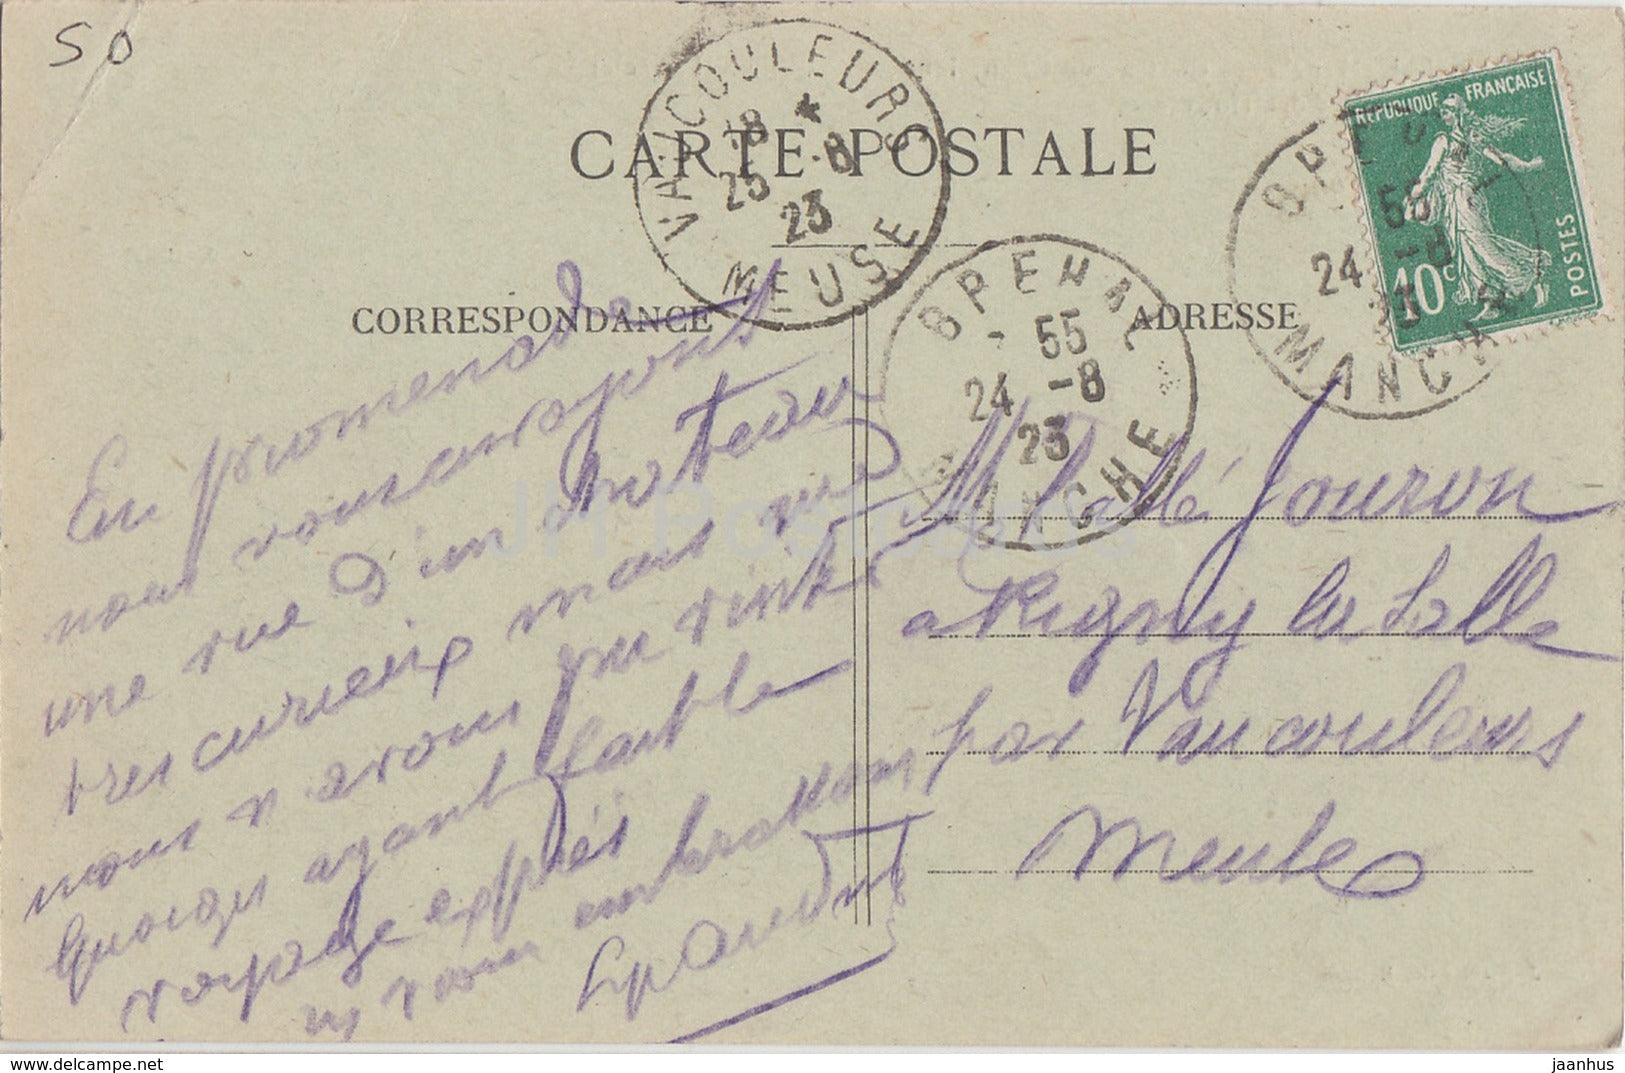 50
VAUCOULEURS
18 *
25 -8
23
MEUSE
CARTE POSTALE
RÉPUBLIQUE FRANÇAISE
10c
POSTES
BREHAL
55
24 -8
23
MANCHE
BREHAL
55
24 -8
23
MANCHE
CORRESPONDANCE
ADRESSE
En promenade
nous vous envoyons
une vue d'un chateau
tres curieux mais que
nous n'avons pu visiter
quoique ayant fait le
voyage exprés
vous embrassons
M l'abbé Jouron
a Rigny la Salle
par Vaucouleurs
Meuse
JH Postcards
jaanhus